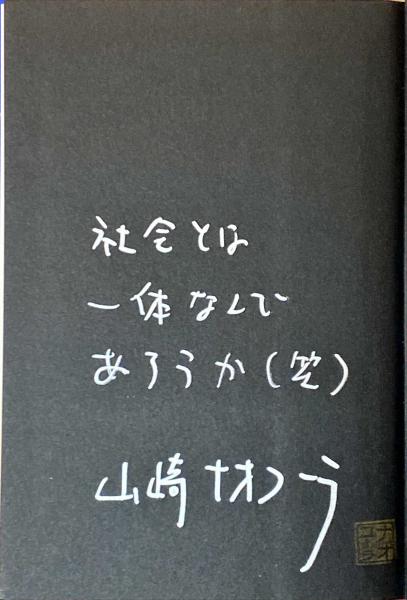 社会とは
一体なんで
あろうか(笑)
山崎ナオコーラ